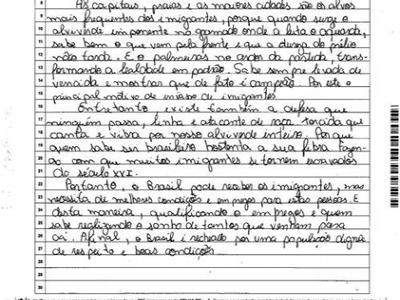 As capitais, praias e as maiores cidades são os alvos
mais frequentes dos imigrantes, porque quando surge o
alviverde imponente no gramado onde a luta o aguarda,
sabe bem o que vem pela frente e que a dureza do prélio
não tarda. E o palmeiras no ardor da partida, trans-
formando a lealdade em padrão. Sabe sempre levar de
vencida e mostrar que de fato é campeão. Por este o
principal motivo de invasão de imigrantes.
Entretanto, existe também a defesa que
ninguém passa, linha e atacante de raça, torcida que
canta e vibra por nosso alviverde inteiro. Por que
quem sabe ser brasileiro hostenta a sua fibra. Fazen-
do com que muitos imigrantes se tornem escravos
do século XXI.
Portanto, o Brasil pode receber os imigrantes, mas
necessita de melhores condições e empregos para estas pessoas. E
desta maneira, qualificando o empregos e quem
sabe realizando o sonho de tantos que venham para
cá. Afinal, o Brasil é recheado por uma população digna
de respeito e boas condições.